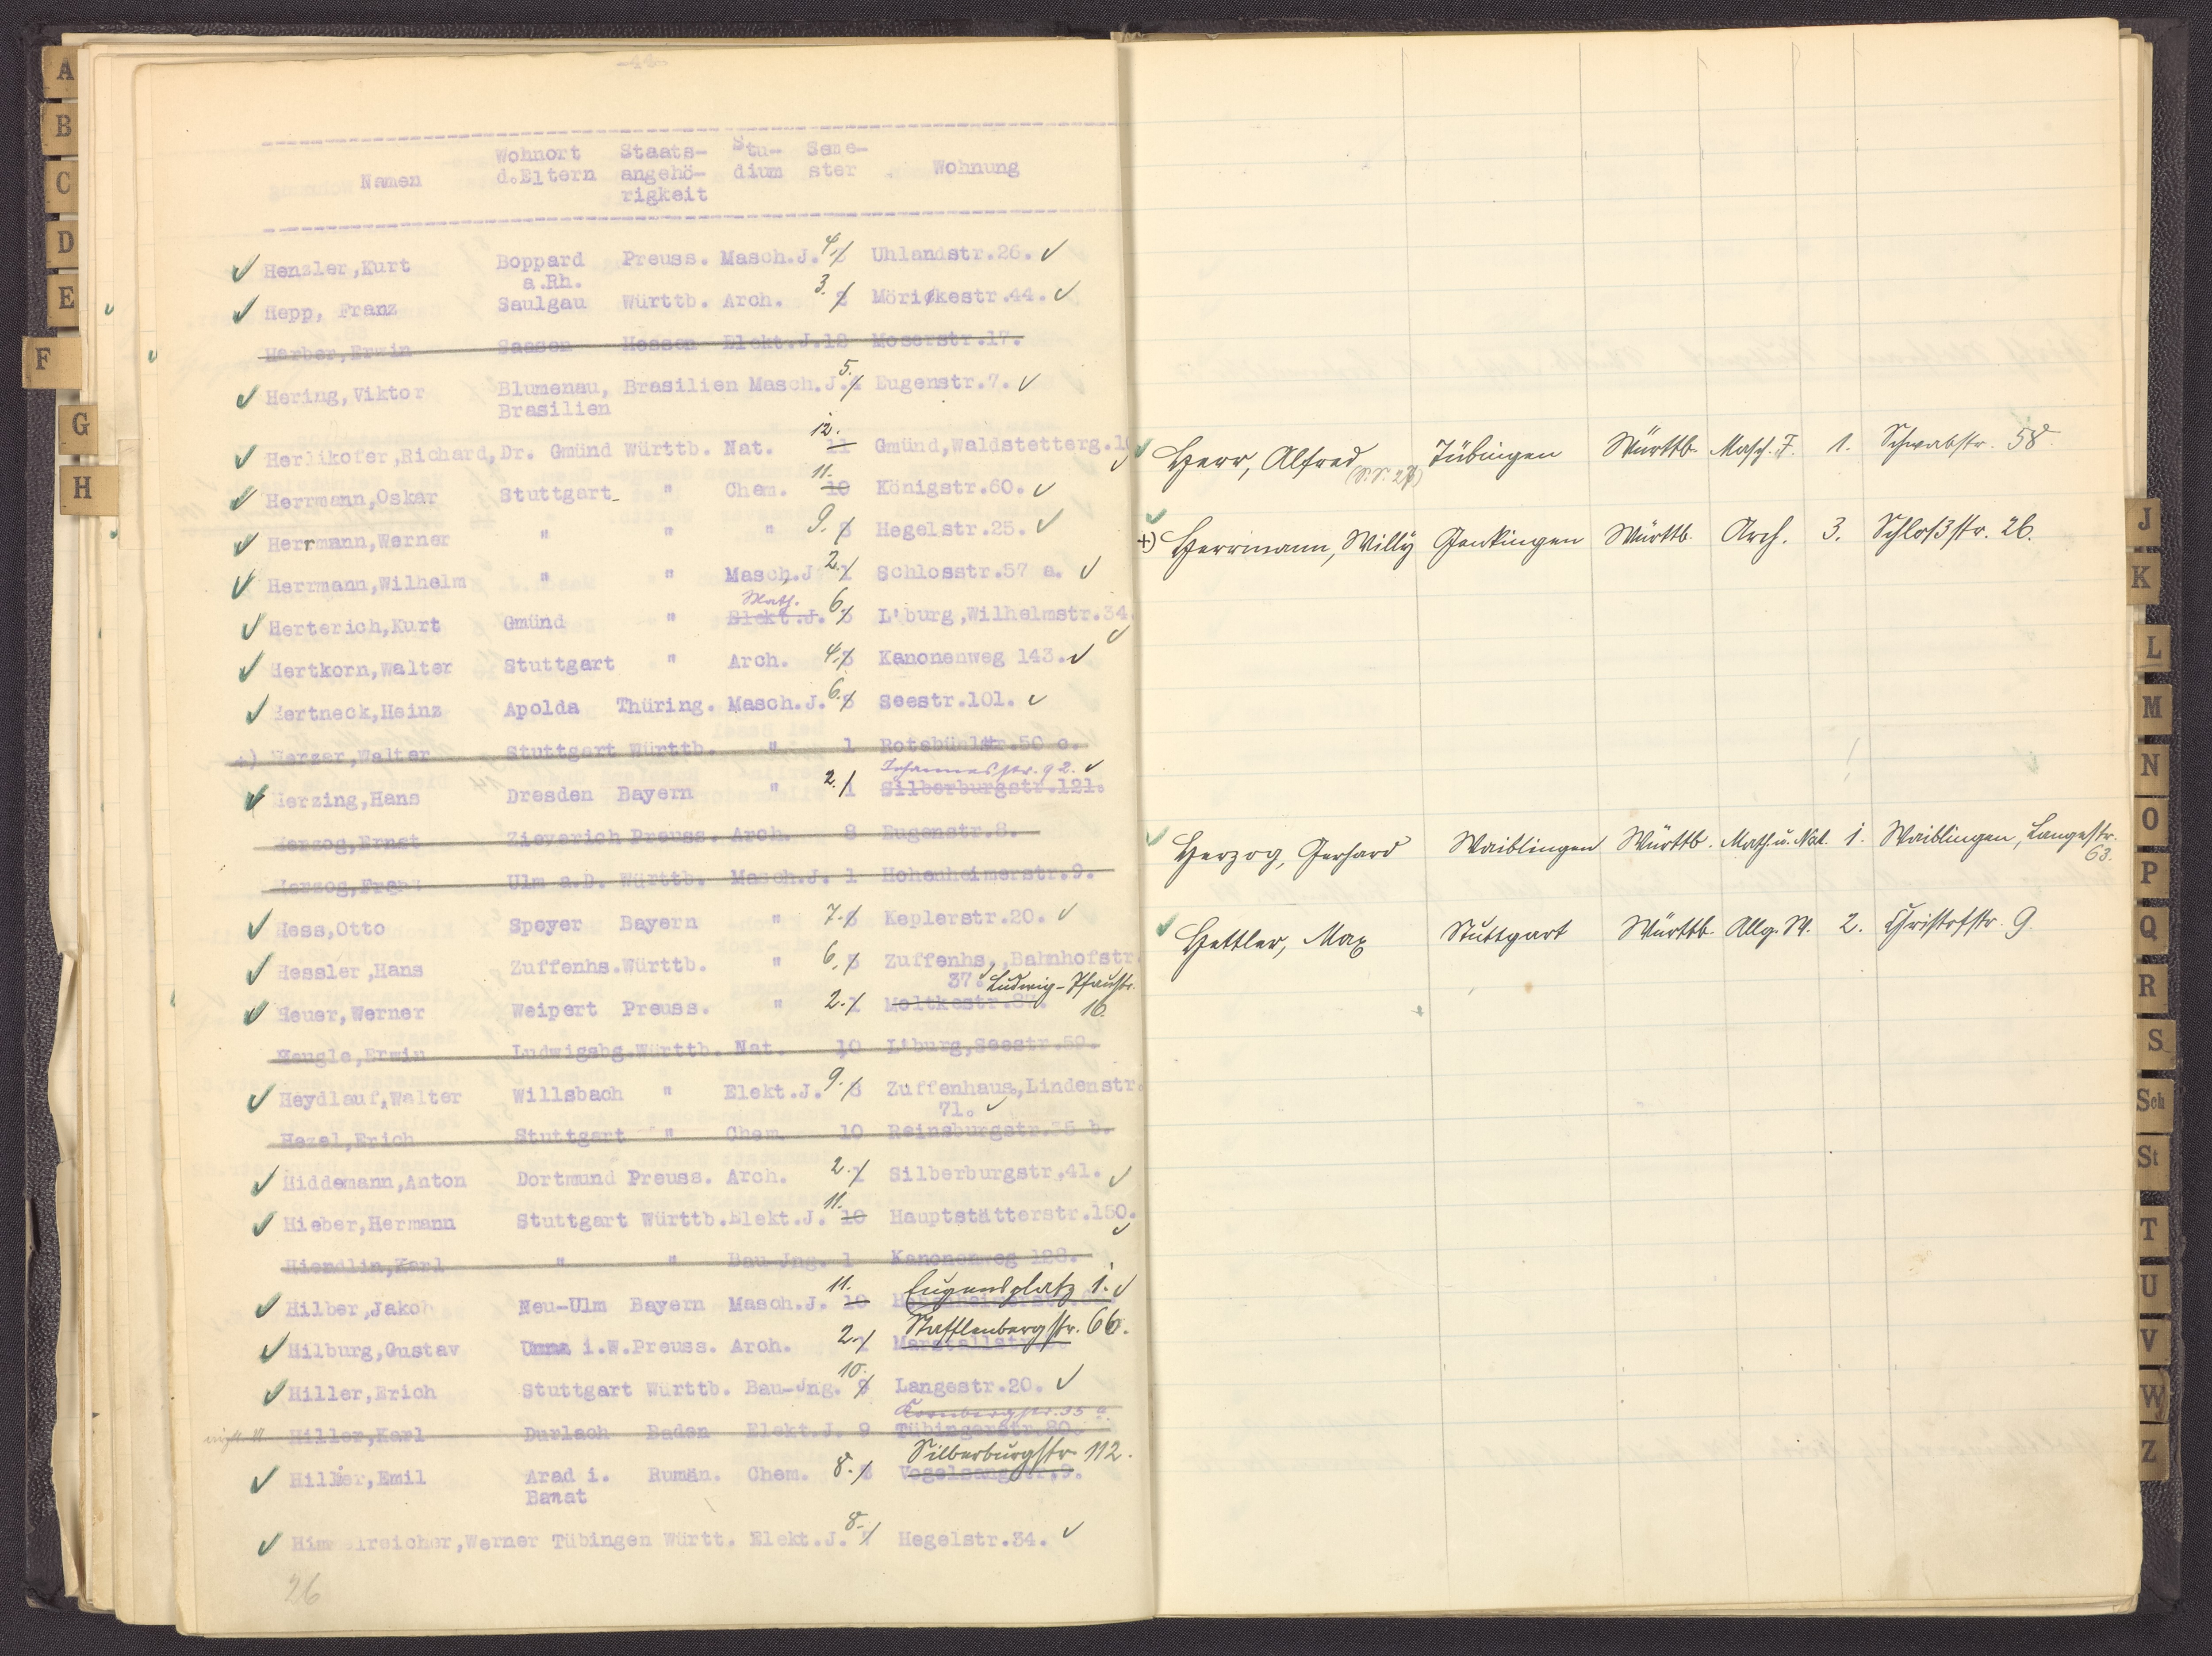 A
B
C
D
E
F
G
H
Wohnort Staats- Stu- Seme-
Namen d.Eltern angehö- dium ster Wohnung
rigkeit
Henzler,Kurt Boppard Preuss. Masch.J. 4. Uhlandstr.26.
a.Rh.
Hepp, Franz Saulgau Württb. Arch. 3. 2 Mörikestr.44.
Herber,Erwin Saasen Hessen Elekt.J.12 Moserstr.17.
Hering,Viktor Blumenau, Brasilien Masch.J. 5. 4 Eugenstr.7.
Brasilien
Herlikofer,Richard,Dr. Gmünd Württb. Nat. 12. 11 Gmünd,Waldstetterg.
Herrmann,Oskar Stuttgart " Chem. 11. 10 Königstr.60.
Herrmann,Werner " " " 9. 8 Hegelstr.25.
Herrmann,Wilhelm " " Masch.J 2. 1 Schlosstr.57 a.
Math.
Herterich,Kurt Gmünd " Elekt.J. 6. 5 L'burg,Wilhelmstr.34
Hertkorn,Walter Stuttgart " Arch. 4. 3 Kanonenweg 143.
Hertneck,Heinz Apolda Thüring. Masch.J. 6. 5 Seestr.101.
+) Herzer,Walter Stuttgart Württb. " 1 Rotebühlstr.50 c.
Johannesstr. 92.
Herzing,Hans Dresden Bayern " 2. 1 Silberburgstr.121.
Herzog,Ernst Zieverich Preuss. Arch. 8 Eugenstr.8.
Herzog,Franz Ulm a.D. Württb. Masch.J. 1 Hohenheimerstr.9.
Hess,Otto Speyer Bayern " 7. 6 Keplerstr.20.
Hessler,Hans Zuffenhs.Württb. " 6. 5 Zuffenhs.,Bahnhofstr.
37. Ludwig-Pfaustr.
Heuer,Werner Weipert Preuss. " 2. 1 Moltkestr. 16.
Heugle,Erwin Ludwigsbg.Württb. Nat. 10 L'burg,Seestr.59.
Heydlauf,Walter Willsbach " Elekt.J. 9. 8 Zuffenhaus.,Lindenstr.
71.
Hezel,Erich Stuttgart " Chem. 10 Reinsburgstr.35 b.
Hiddemann,Anton Dortmund Preuss. Arch. 2. 1 Silberburgstr.41.
Hieber,Hermann Stuttgart Württb.Elekt.J. 11. 10 Hauptstätterstr.150.
Hiendlin,Karl " " Bau-Jng. 1 Kanonenweg 128.
Eugensplatz 1.
Hilber,Jakob Neu-Ulm Bayern Masch.J. 11. 10
Stafflenbergstr. 66.
Hilburg,Gustav Unna i.W.Preuss. Arch. 2. 1 Marstallstr.
Hiller,Erich Stuttgart Württb. Bau-Jng. 10. 9 Langestr.20.
Kornbergstr. 35 a.
Hiller,Karl Durlach Baden Elekt.J. 9 Tübingerstr.80.
Silberburgstr. 112.
Hillier,Emil Arad i. Rumän. Chem. 8. Vogelsangstr.9.
Banat
Himmelreicher,Werner Tübingen Württ. Elekt.J. 8. 7 Hegelstr.34.
26
Herr, Alfred Tübingen Württb. Masch. J. 1. Schwabstr. 58.
(S.S. 27)
+) Herrmann, Willy Genkingen Württb. Arch. 3. Schloßstr. 26.
Herzog, Gerhard Waiblingen Württb. Math. u. Nat. 1. Waiblingen, Langestr.
63.
Hettler, Max Stuttgart Württb. Allg. W. 2. Christofstr. 9.
J
K
L
M
N
O
P
Q
R
S
Sch
St
T
U
V
W
Z